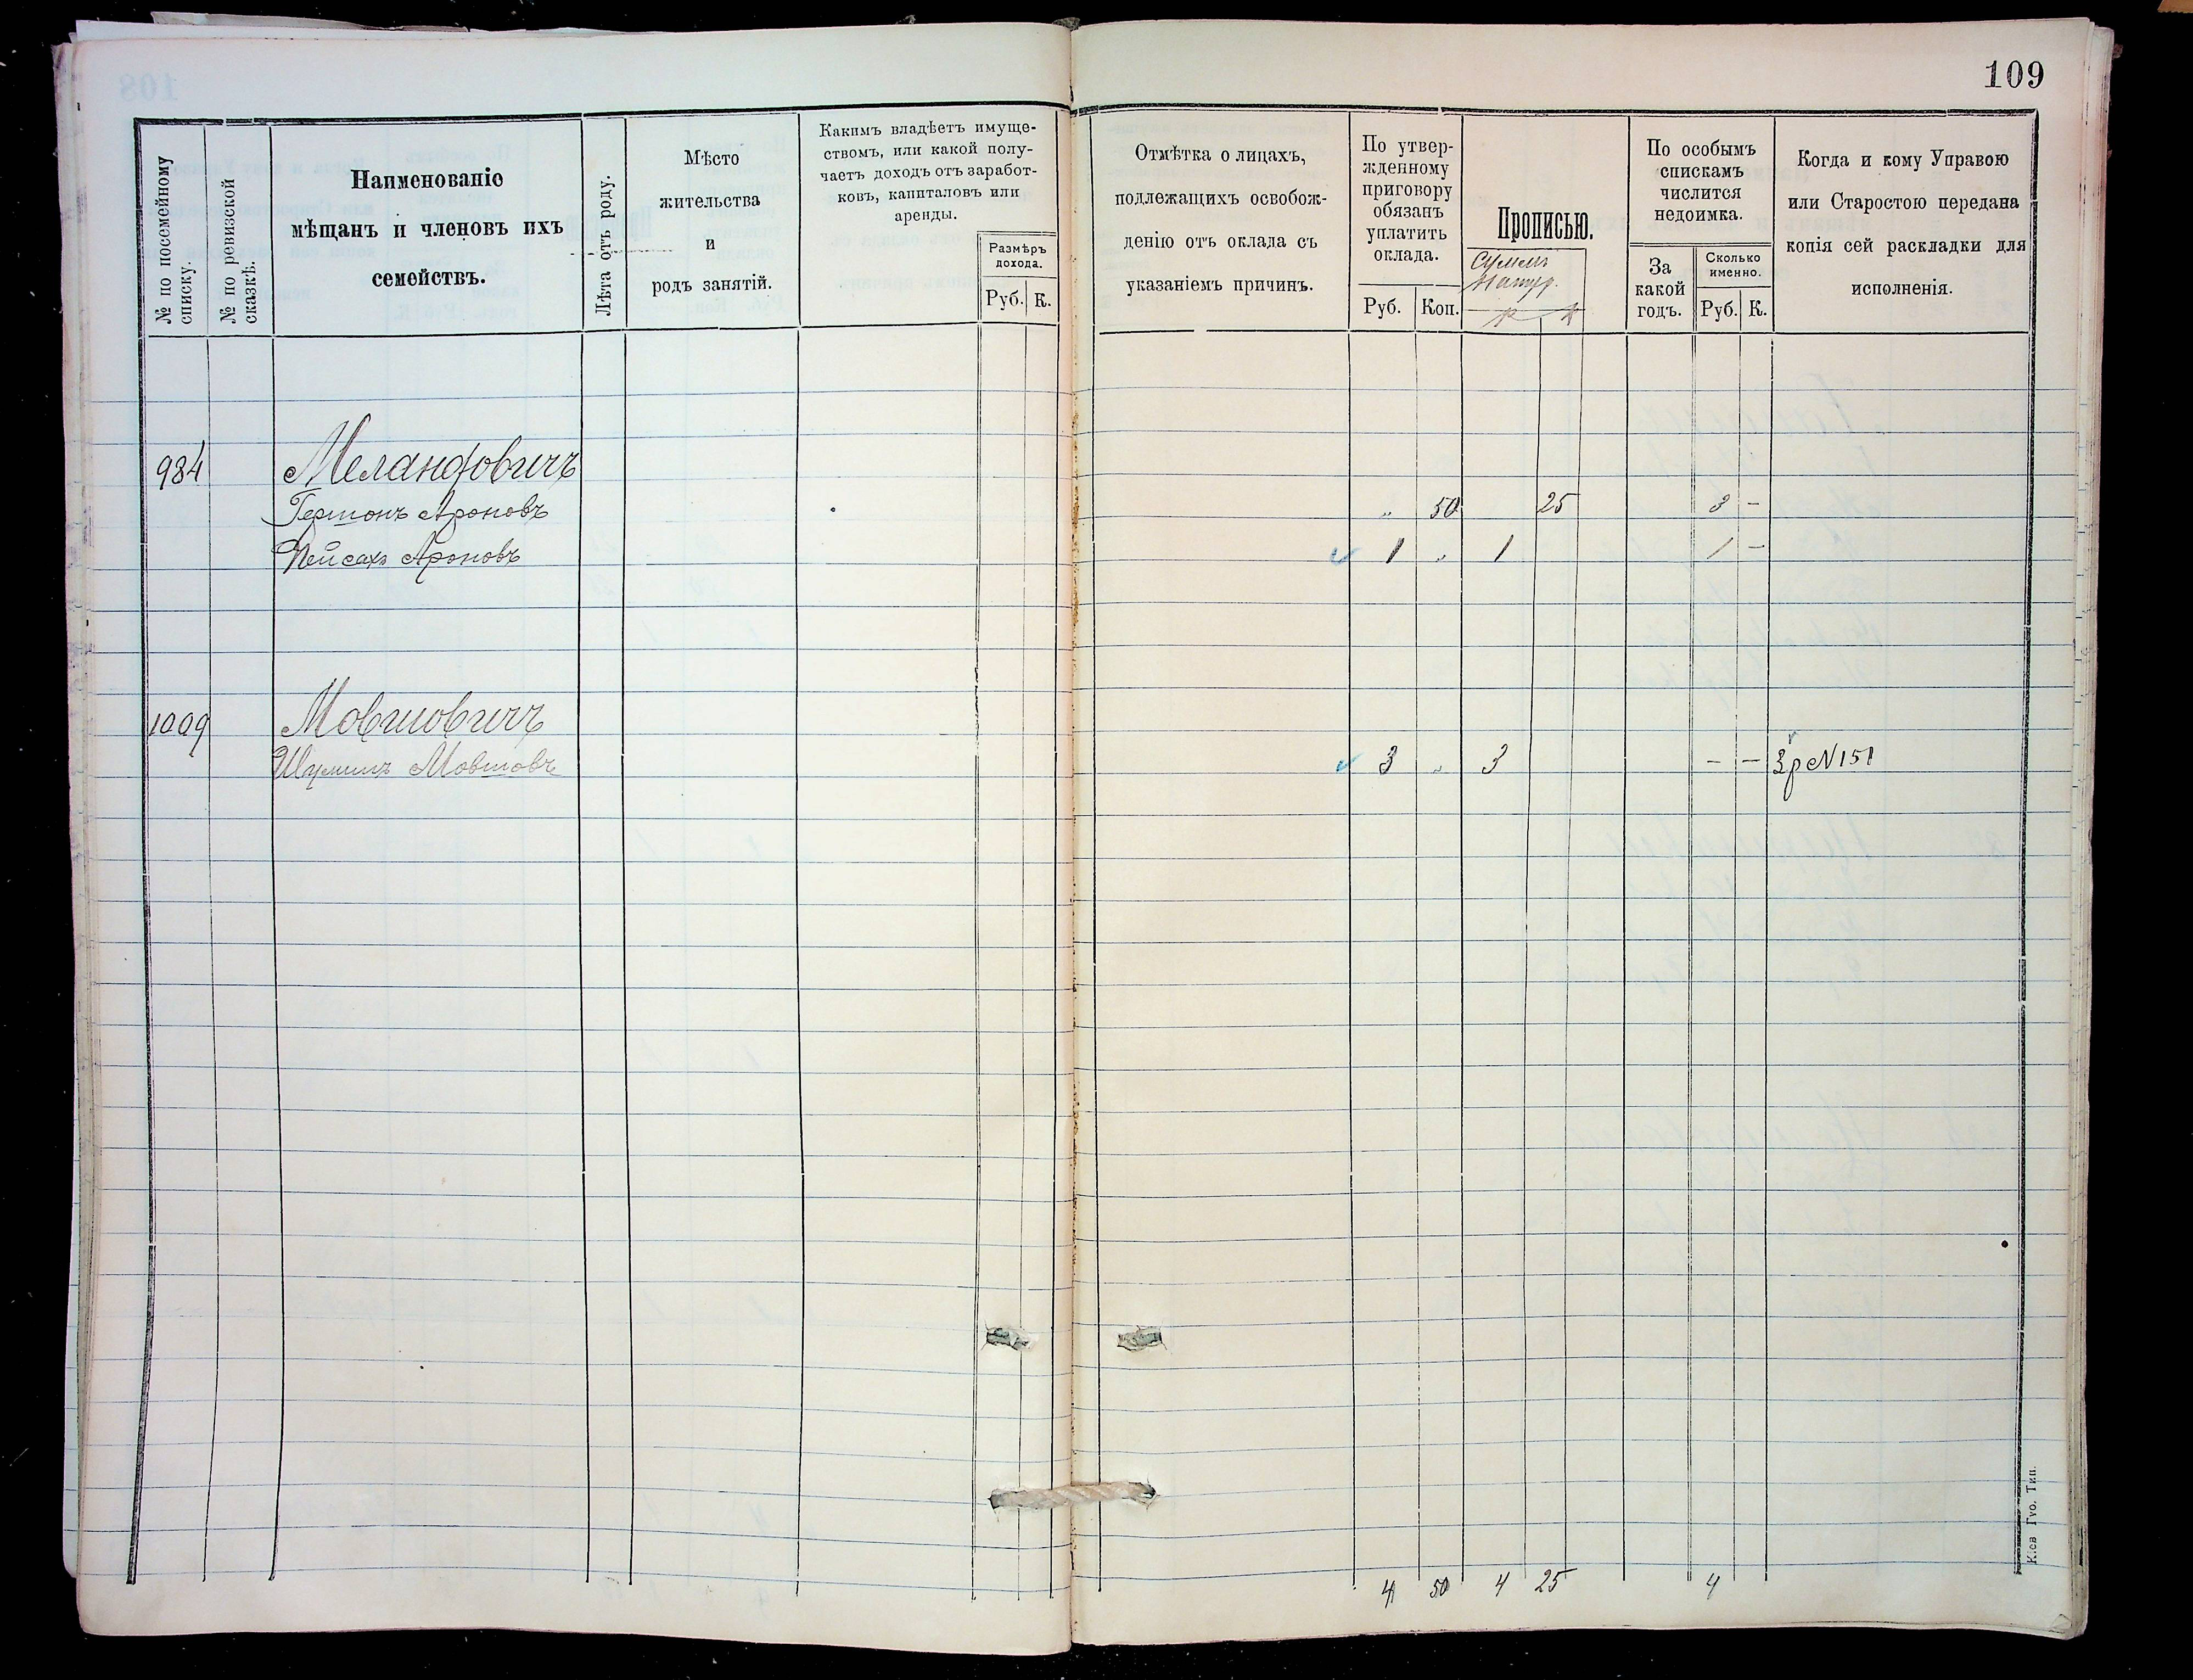 109
№ по посемейному списку.
№ по ревизской сказкѣ.
Наименованіе
мѣщанъ и членовъ ихъ
семействъ.
Лѣта отъ роду.
Мѣсто
жительства
и
родъ занятій.
Какимъ владѣетъ имуще-
ствомъ, или какой полу-
чаетъ доходъ отъ заработ-
ковъ, капиталовъ или
аренды.
Размѣръ
дохода.
Руб. К.
Отмѣтка о лицахъ,
подлежащихъ освобож-
денію отъ оклада съ
указаніемъ причинъ.
По утвер-
жденному
приговору
обязанъ
уплатить
оклада.
Руб. Коп.
Прописью.
р к
По особымъ
спискамъ
числится
недоимка.
За
какой
годъ.
Сколько
именно.
Руб. К.
Когда и кому Управою
или Старостою передана
копія сей раскладки для
исполненія.
984 Меландовичъ
Гершонъ Ароновъ „ 50 25 3 -
Пейсахъ Ароновъ 1 „ 1 1 -
1009 Мовшовичъ
Шулимъ Мовшовъ 3 „ 3 - - 3р N 151
4 50 4 25 4
Кіев Губ. Тип.